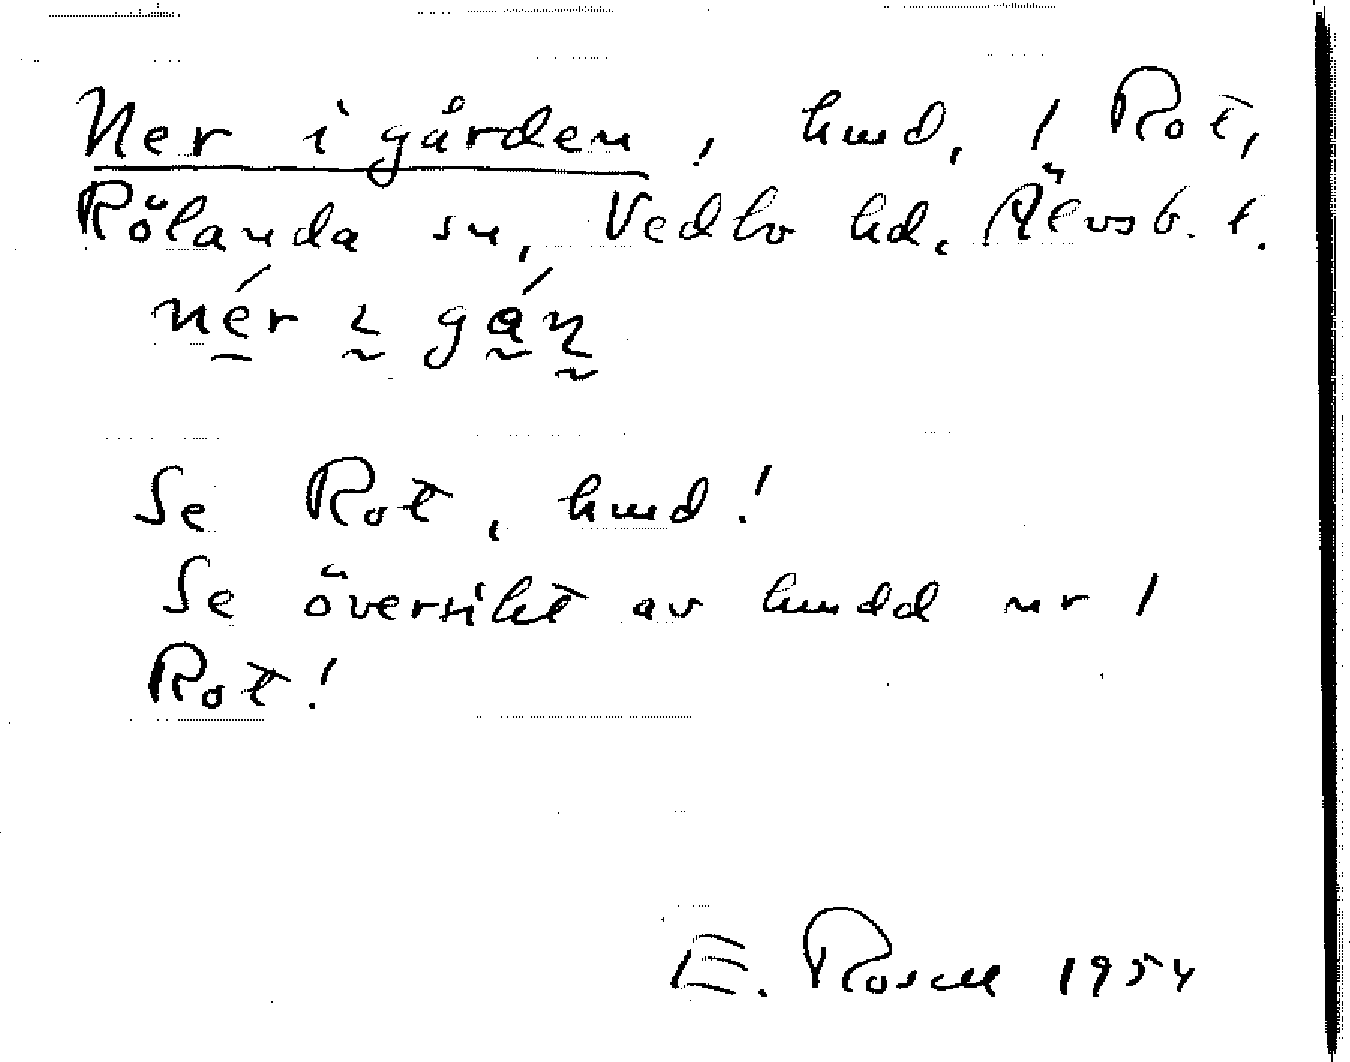 Ner i gården, hmd, 1 Rot,
Rölanda sn, Vedbo hd. Älvsb. l.
Se Rot, hmd!
Se översikt av hmdd nr 1
Rot!
E. Rosell 1954